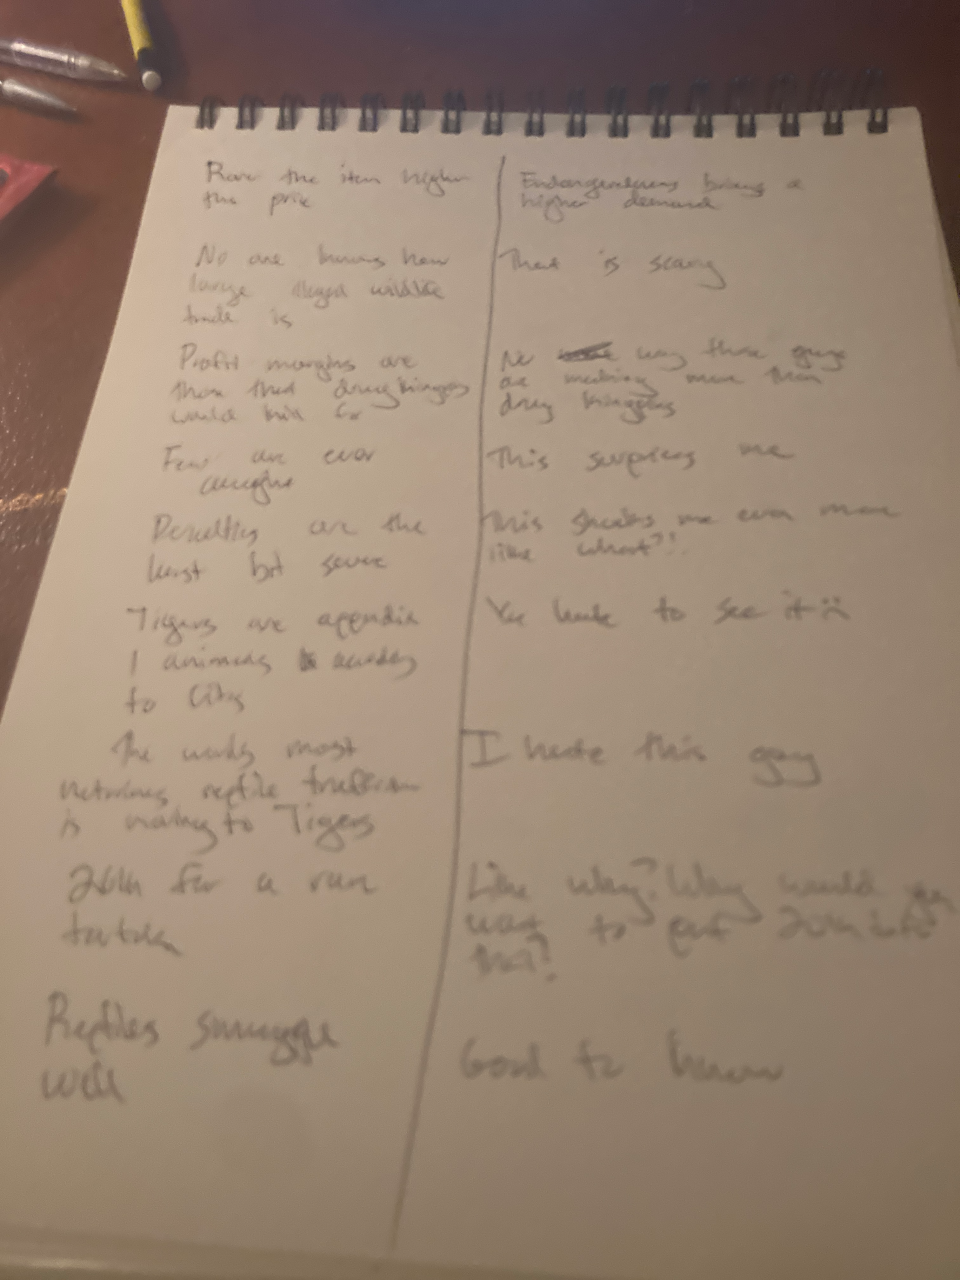 Rarer the item higher
the price
No one knows how
large illegal wildlife
trade is
Profit margins are
those that drug kingpins
would kill for
Few are ever
caught
Penalties are the
least bit severe
Tigers are appendix
1 animals
to
The worlds most
notorious reptile
is to Tigers
20k for a rare
Reptiles smuggle
well
brings a
higher demand
That is scary
No way those guys
are making more than
drug kingpins
This surprises me
This shocks me even more
like what?!
You hate to see it :(
I hate this guy
Like why? Why would you
want to put 20k into
this?
Good to know